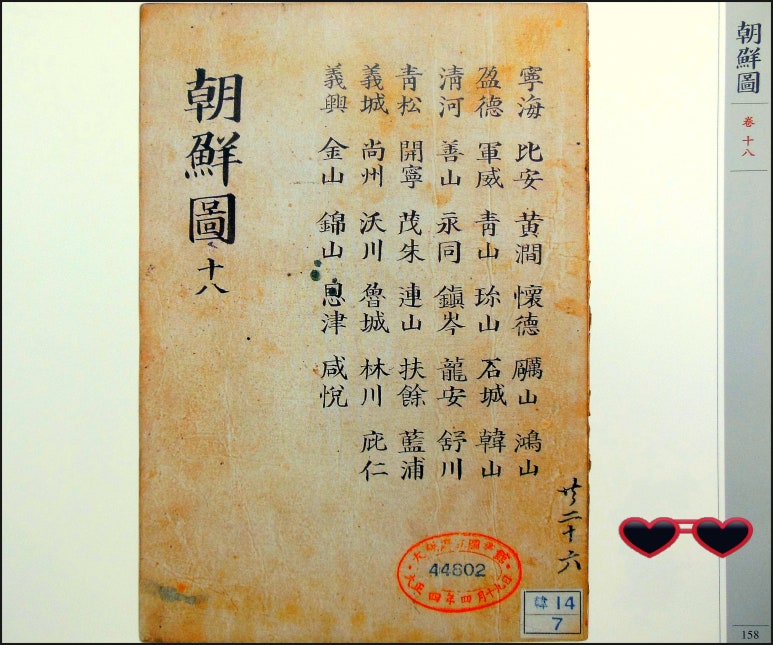 朝鮮圖
卷十八
寧海 比安 黃澗 懷德 礪山 鴻山
盈德 軍威 靑山 珎山 石城 韓山
清河 善山 永同 鎭岑 龍安 舒川
靑松 開寧 茂朱 連山 扶餘 藍浦
義城 尙州 沃川 魯城 林川 庇仁
義興 金山 錦山 恩津 咸悅
朝鮮圖 十八
共二十六
44802
大正四年四月十九日
韓 14
7
158